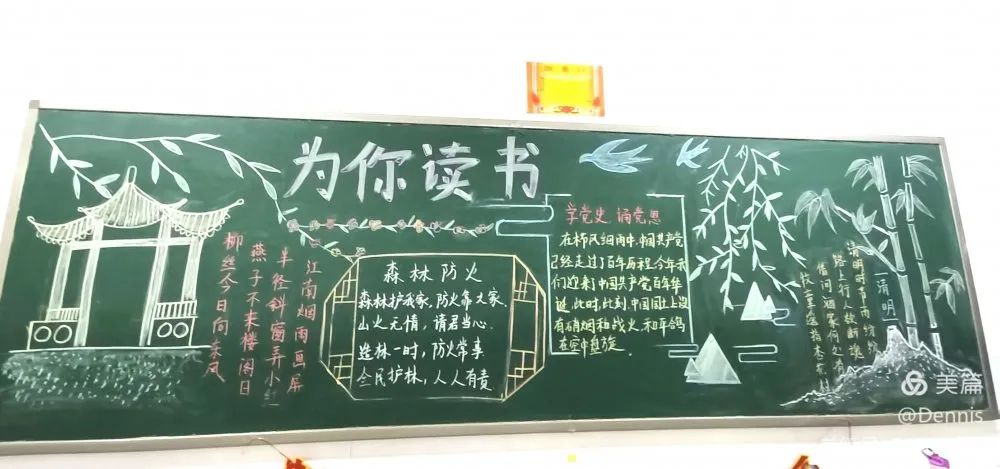 为你读书
江南烟雨画屏
径斜窗弄小
燕子不来楼阁日
柳丝今日向东风
森林防火
森林护我家,防火靠大家.
山火无情,请君当心.
造林一时,防火常事
全民护林,人人有责.
学党史 诵党恩
在风细雨中,中国共产党
已经走过了百年历程,今年我
们迎来了中国共产党百年华
诞,此时,此刻,中国国土上没
有硝烟和战火,和平鸽
在空中盘旋.
清明
清明时节雨纷纷
路上行人欲断魂
借问酒家何处有
牧童遥指杏花村
美篇
@Dennis